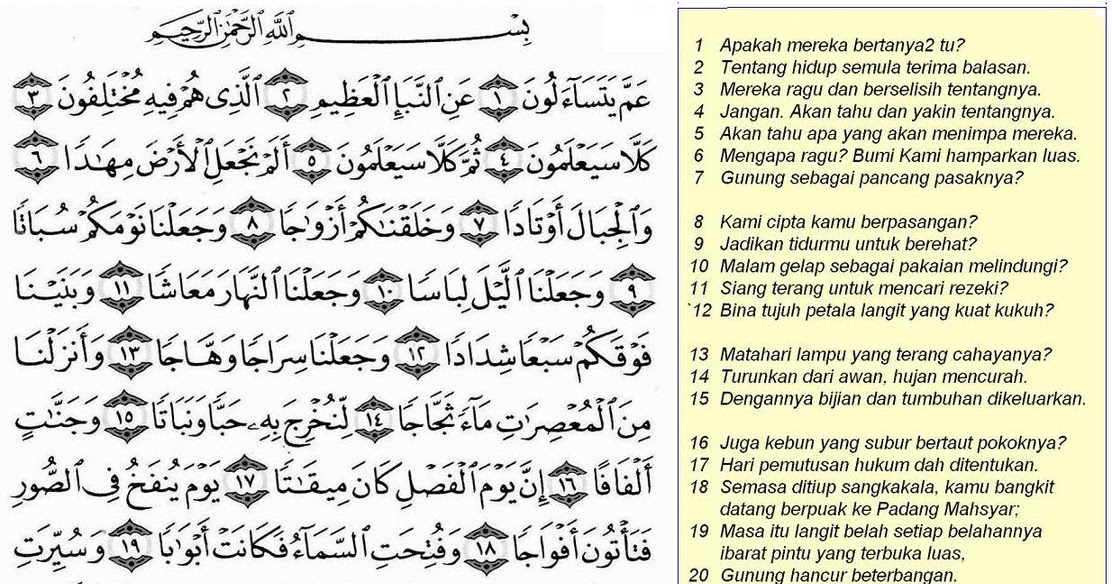 بِسْمِ اللَّهِ الرَّحْمَٰنِ الرَّحِيمِ
عَمَّ يَتَسَآءَلُونَ ١ عَنِ النَّبَإِ الْعَظِيمِ ٢ الَّذِى هُمْ فِيهِ مُخْتَلِفُونَ ٣
كَلَّا سَيَعْلَمُونَ ٤ ثُمَّ كَلَّا سَيَعْلَمُونَ ٥ أَلَمْ نَجْعَلِ الْأَرْضَ مِهَٰدًا ٦
وَالْجِبَالَ أَوْتَادًا ٧ وَخَلَقْنَٰكُمْ أَزْوَٰجًا ٨ وَجَعَلْنَا نَوْمَكُمْ سُبَاتًا
٩ وَجَعَلْنَا الَّيْلَ لِبَاسًا ١٠ وَجَعَلْنَا النَّهَارَ مَعَاشًا ١١ وَبَنَيْنَا
فَوْقَكُمْ سَبْعًا شِدَادًا ١٢ وَجَعَلْنَا سِرَاجًا وَهَّاجًا ١٣ وَأَنزَلْنَا
مِنَ الْمُعْصِرَٰتِ مَآءً ثَجَّاجًا ١٤ لِّنُخْرِجَ بِهِۦ حَبًّا وَنَبَاتًا ١٥ وَجَنَّٰتٍ
أَلْفَافًا ١٦ إِنَّ يَوْمَ الْفَصْلِ كَانَ مِيقَٰتًا ١٧ يَوْمَ يُنفَخُ فِى الصُّورِ
فَتَأْتُونَ أَفْوَاجًا ١٨ وَفُتِحَتِ السَّمَآءُ فَكَانَتْ أَبْوَٰبًا ١٩ وَسُيِّرَتِ
1 Apakah mereka bertanya2 tu?
2 Tentang hidup semula terima balasan.
3 Mereka ragu dan berselisih tentangnya.
4 Jangan. Akan tahu dan yakin tentangnya.
5 Akan tahu apa yang akan menimpa mereka.
6 Mengapa ragu? Bumi Kami hamparkan luas.
7 Gunung sebagai pancang pasaknya?
8 Kami cipta kamu berpasangan?
9 Jadikan tidurmu untuk berehat?
10 Malam gelap sebagai pakaian melindungi?
11 Siang terang untuk mencari rezeki?
`12 Bina tujuh petala langit yang kuat kukuh?
13 Matahari lampu yang terang cahayanya?
14 Turunkan dari awan, hujan mencurah.
15 Dengannya bijian dan tumbuhan dikeluarkan.
16 Juga kebun yang subur bertaut pokoknya?
17 Hari pemutusan hukum dah ditentukan.
18 Semasa ditiup sangkakala, kamu bangkit
datang berpuak ke Padang Mahsyar;
19 Masa itu langit belah setiap belahannya
ibarat pintu yang terbuka luas,
20 Gunung hancur beterbangan.